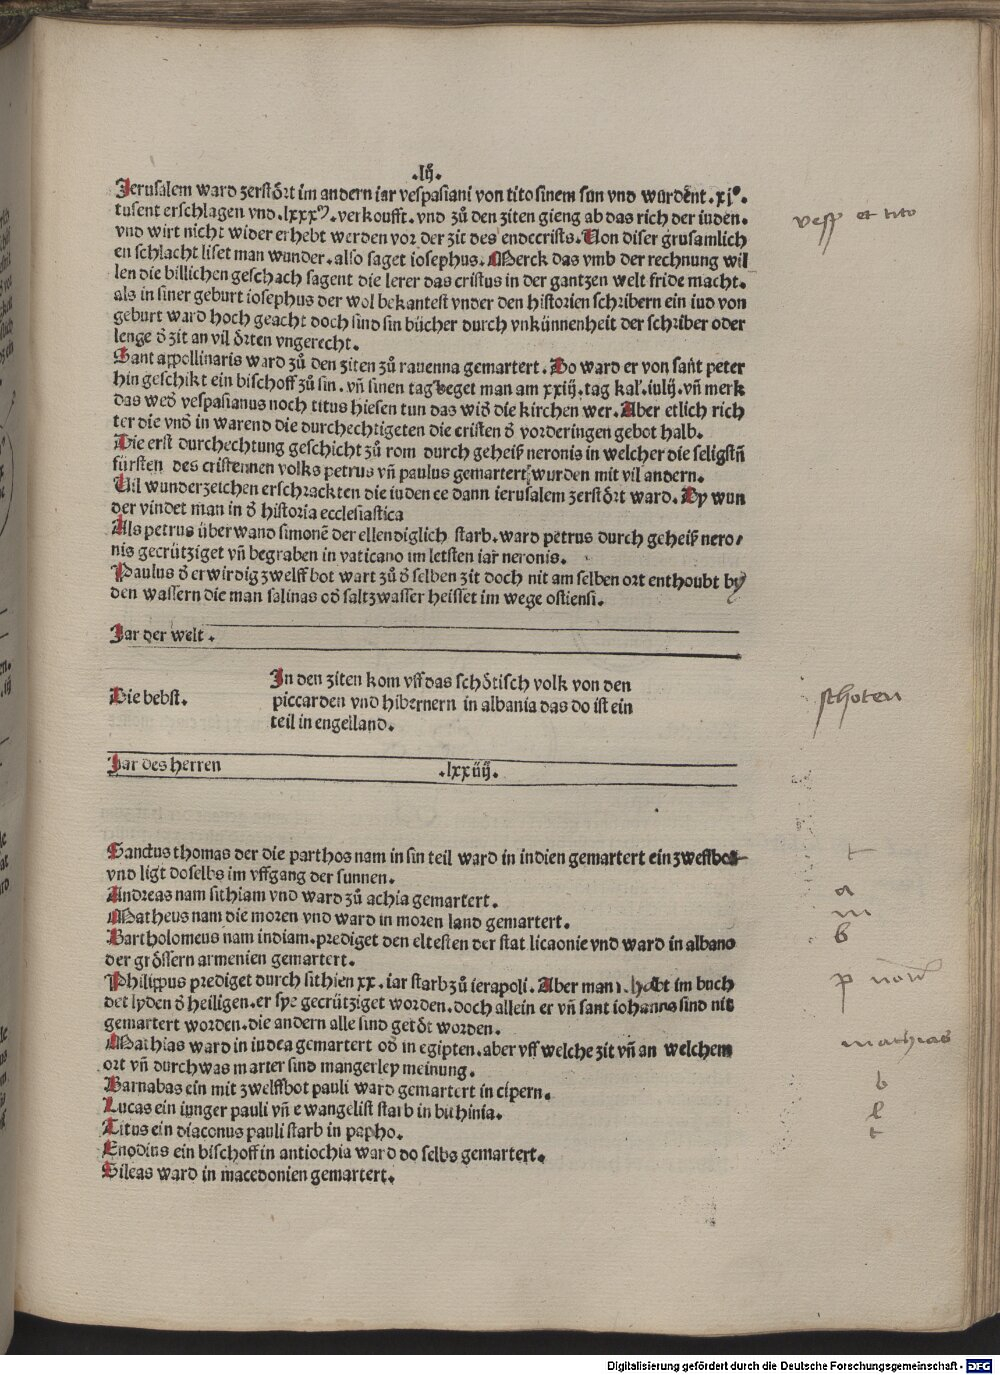 .lij.
Jerusalem ward zerstört im andern iar vespasiani von tito sinem sun vnd wurdent .xj°.
tusent erschlagen vnd .lxxx⁹. verkoufft. vnd zů den ziten gieng ab das rich der iuden.
vnd wirt nicht wider erhebt werden vor der zit des endccrists. Von diser grusamlich
en schlacht liset man wunder. also saget iosephus. Merck das vmb der rechnung wil
len die billichen geschach sagent die lerer das cristus in der gantzen welt fride macht.
als in siner geburt iosephus der wol bekantest vnder den historien schribern ein iud von
geburt ward hoch geacht doch sind sin bücher durch vnkünnenheit der schriber oder
lenge d̄ zit an vil örten vngerecht.
Sant appollinaris ward zů den ziten zů rauenna gemartert. Do ward er von sant peter
hin geschikt ein bischoff zů sin. vn̄ sinen tag beget man am xxiij. tag kal'. iulij. vn̄ merk
das wed̄ vespasianus noch titus hiesen tun das wid̄ die kirchen wer. Aber etlich rich
ter die vnd̄ in warend die durchechtigeten die cristen d̄ vorderingen gebot halb.
Die erst durchechtung geschicht zů rom durch geheiß neronis in welcher die seligstn̄
fürsten des cristennen volks petrus vn̄ paulus gemartert wurden mit vil andern.
Vil wunderzeichen erschrackten die iuden ee dann ierusalem zerstört ward. Dy wun
der vindet man in d̄ historia ecclesiastica
Als petrus überwand simonē der ellendiglich starb. ward petrus durch geheiß nero/
nis gecrütziget vn̄ begraben in vaticano im letsten iar neronis.
Paulus d̄ erwirdig zwelff bot wart zů d̄ selben zit doch nit am selben ort enthoubt by
den wassern die man salinas od̄ saltzwasser heisset im wege ostiensi.
vesp et tito
Jar der welt.
Die bebst.
In den ziten kom vff das schötisch volk von den
piccarden vnd hibernern in albania das do ist ein
teil in engelland.
schoten
Jar des herren .lxxiiij.
Sanctus thomas der die parthos nam in sin teil ward in indien gemartert ein zwelfbot
vnd ligt doselbs im vffgang der sunnen.
Andreas nam sithiam vnd ward zů achia gemartert.
Matheus nam die moren vnd ward in moren land gemartert.
Bartholomeus nam indiam. prediget den eltesten der stat licaonie vnd ward in albano
der grössern armenien gemartert.
Philippus prediget durch sithien xx. iar starb zů ierapoli. Aber man habt im buch
det lyden d̄ heiligen. er sye gecrütziget worden. doch allein er vn̄ sant iohanns sind nit
gemartert worden. die andern alle sind getöt worden.
Mathias ward in iudea gemartert od̄ in egipten. aber vff welche zit vn̄ an welchem
ort vn̄ durch was marter sind mangerley meinung.
Barnabas ein mit zwelffbot pauli ward gemartert in cipern.
Lucas ein iunger pauli vn̄ ewangelist starb in bithinia.
Titus ein diaconus pauli starb in papho.
Enodius ein bischoff in antiochia ward do selbs gemartert.
Sileas ward in macedonien gemartert.
t
a
m
b
p
mathias
b
l
t
Digitalisierung gefördert durch die Deutsche Forschungsgemeinschaft - DFG